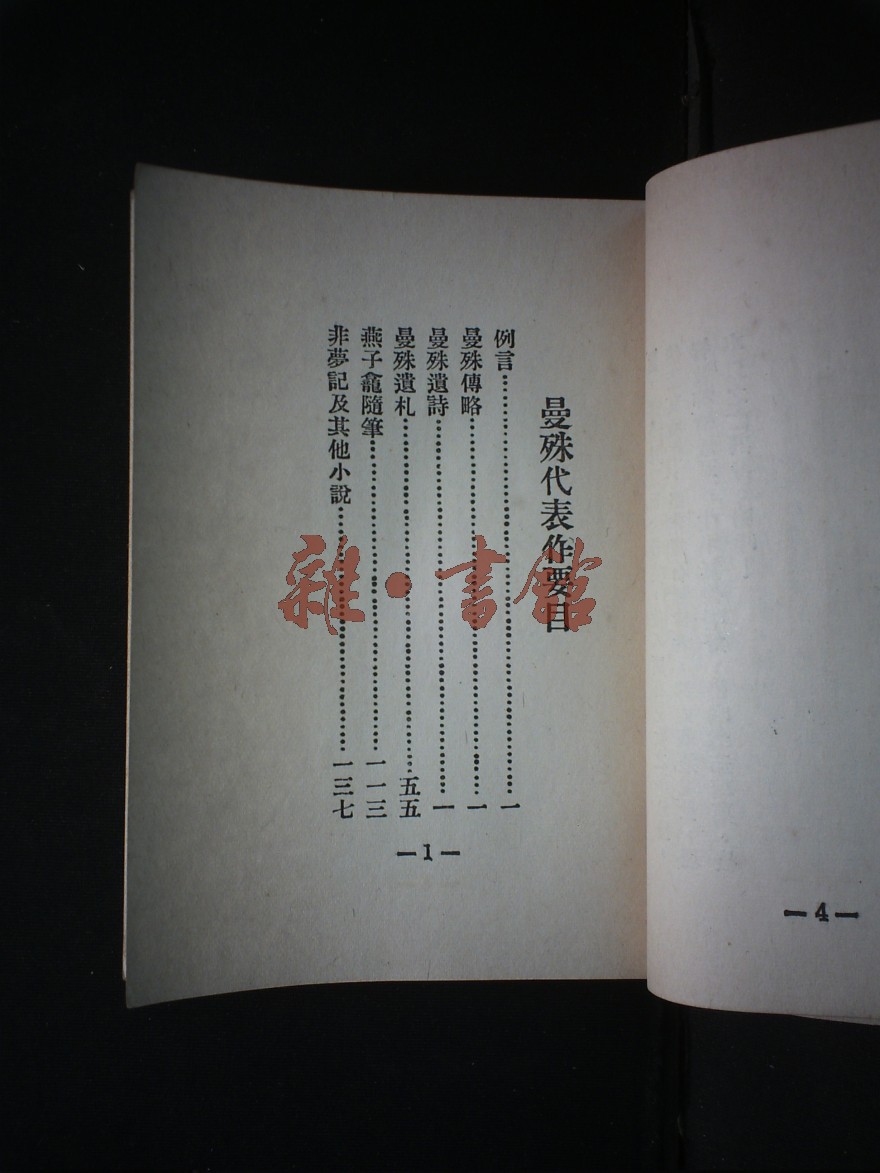 曼殊代表作要目
例言……………………一
曼殊傳略……………………一
曼殊遺詩……………………一
曼殊遺札……………………五五
燕子龕隨筆……………………一一三
非夢記及其他小說……………………一三七
—1—
—4—
雜·書館